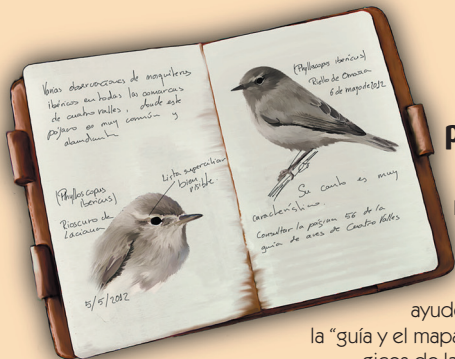 Varias observaciones de mosquiteros
ibéricos en todas las comarcas
de cuatro valles, donde este
pájaro es muy común y
abundante
(Phylloscopus
ibericus)
Rioscuro de
Laciana
Lista superciliar
bien
visible
5/5/2012
(Phylloscopus ibericus)
Riello de Omaña
6 de mayo de 2012
Su canto es muy
característico.
Consultar la página 56 de la
guía de aves de Cuatro Valles
ayud
la “guía y el mapa